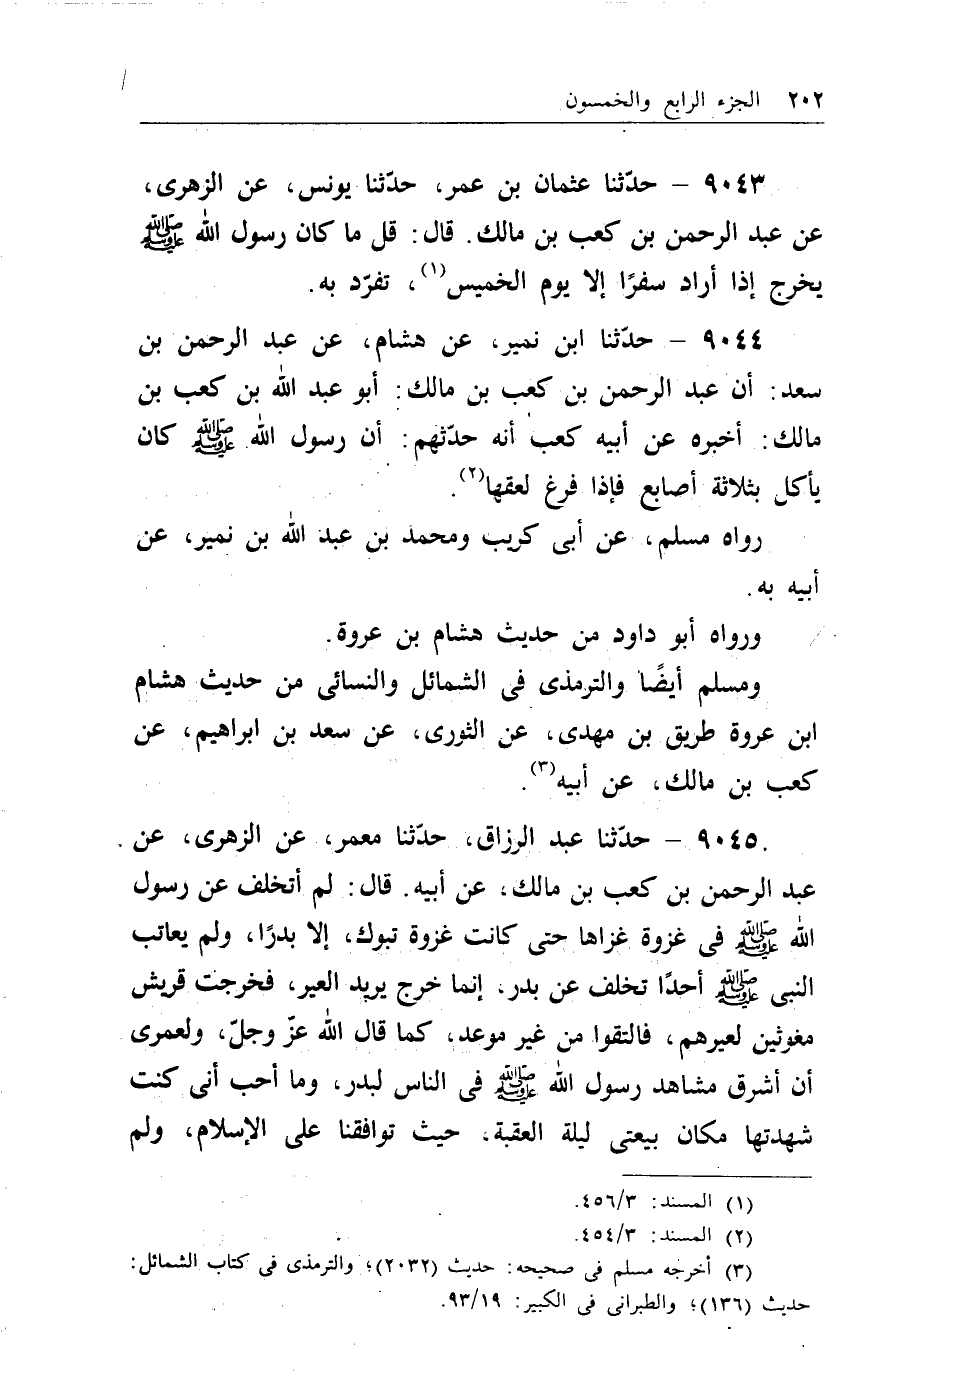 ٢٠٢ الجزء الرابع والخمسون
٩٠٤٣ - حدّثنا عثمان بن عمر، حدّثنا يونس، عن الزهرى،
عن عبد الرحمن بن كعب بن مالك. قال: قل ما كان رسول الله ﷺ
يخرج إذا أراد سفرًا إلا يوم الخميس(١)، تفرّد به.
٩٠٤٤ - حدّثنا ابن نمير، عن هشام، عن عبد الرحمن بن
سعد: أن عبد الرحمن بن كعب بن مالك: أبو عبد الله بن كعب بن
مالك: أخبره عن أبيه كعب أنه حدّثهم: أن رسول الله ﷺ كان
يأكل بثلاثة أصابع فإذا فرغ لعقها(٢).
رواه مسلم، عن أبى كريب ومحمد بن عبد الله بن نمير، عن
أبيه به.
ورواه أبو داود من حديث هشام بن عروة.
ومسلم أيضًا والترمذى فى الشمائل والنسائى من حديث هشام
ابن عروة طريق بن مهدى، عن الثورى، عن سعد بن ابراهيم، عن
كعب بن مالك، عن أبيه(٣).
٩٠٤٥ - حدّثنا عبد الرزاق، حدّثنا معمر، عن الزهرى، عن
عبد الرحمن بن كعب بن مالك، عن أبيه. قال: لم أتخلف عن رسول
الله ﷺ فى غزوة غزاها حتى كانت غزوة تبوك، إلا بدرًا، ولم يعاتب
النبى ﷺ أحدًا تخلف عن بدر، إنما خرج يريد العير، فخرجت قريش
مغوثين لعيرهم، فالتقوا من غير موعد، كما قال الله عزّ وجلّ، ولعمرى
أن أشرق مشاهد رسول الله ﷺ فى الناس لبدر، وما أحب أنى كنت
شهدتها مكان بيعتى ليلة العقبة، حيث توافقنا على الإسلام، ولم
(١) المسند: ٤٥٦/٣.
(٢) المسند: ٤٥٤/٣.
(٣) أخرجه مسلم فى صحيحه: حديث (٢٠٣٢)؛ والترمذى فى كتاب الشمائل:
حديث (١٣٦)؛ والطبرانى فى الكبير: ٩٣/١٩.